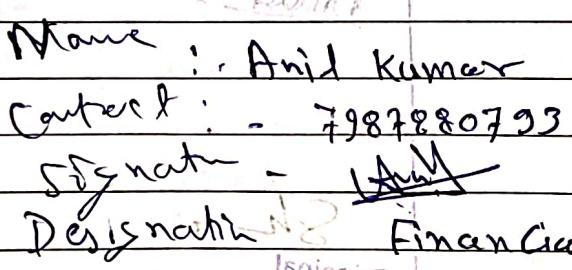 Name :- Anil Kumar
Contect :- 7987880793
Signatu -
Designatin Financia